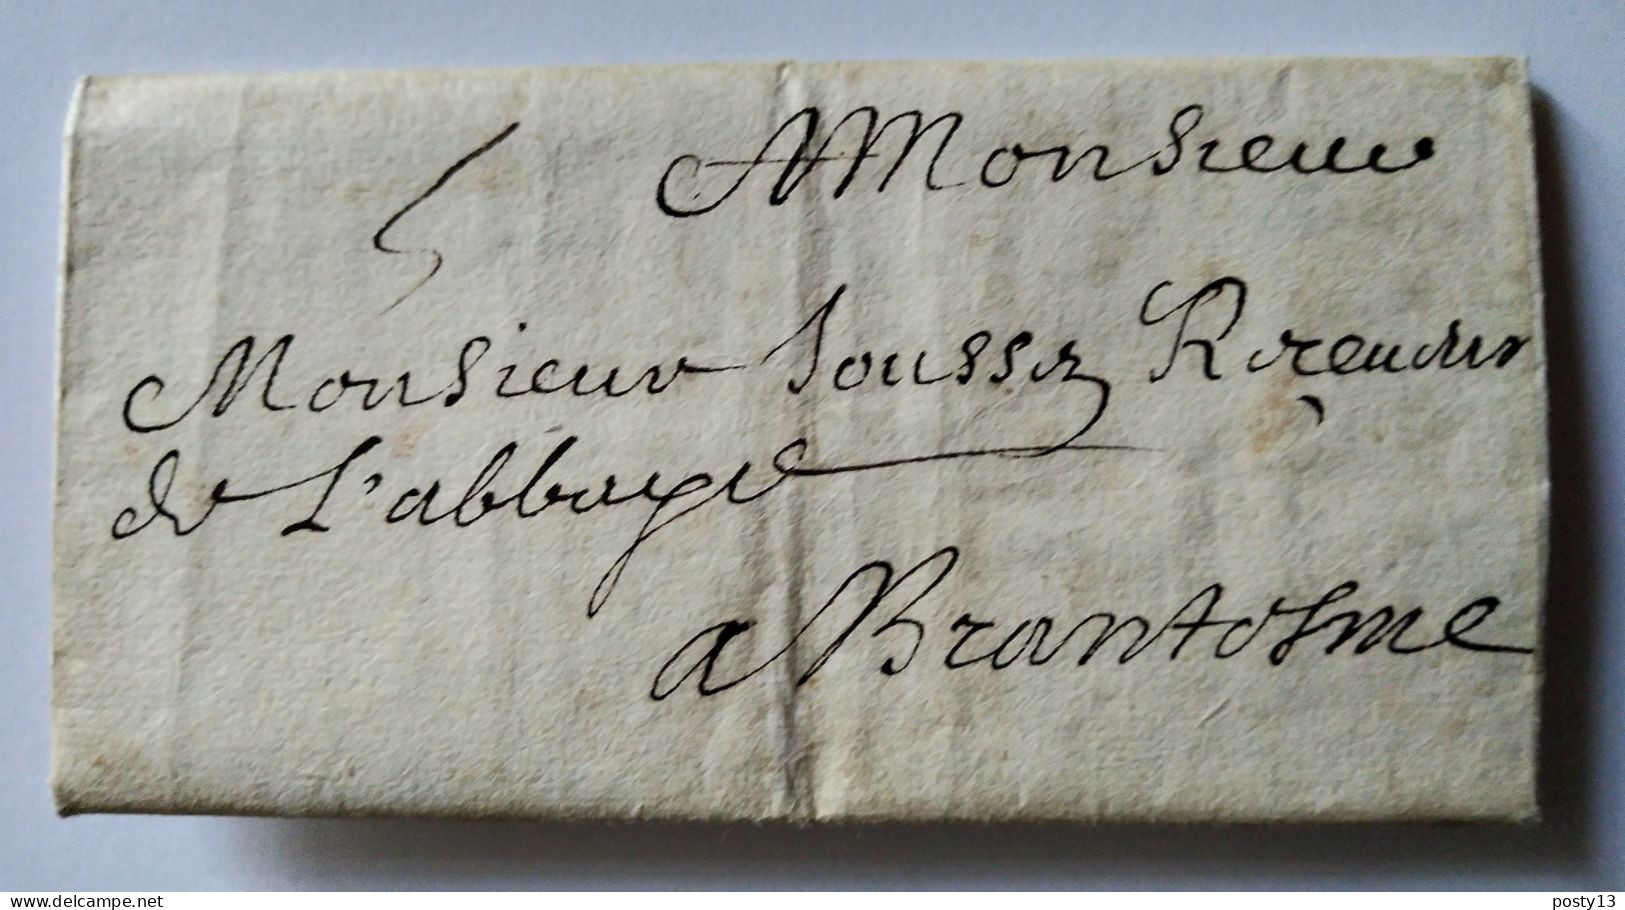 5
A Monsieur
Monsieur Soussez
de L'abbaye
a Brantosme
www.delcampe.net
posty13